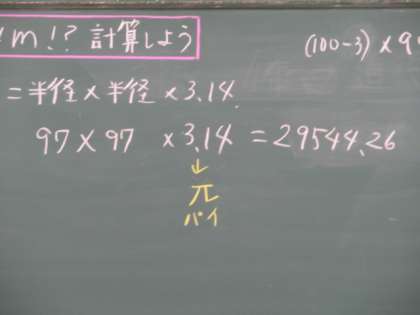 m!? 計算しよう
(100-3)×9
=半径×半径×3.14
97×97×3.14=29544.26
↓
π
パイ